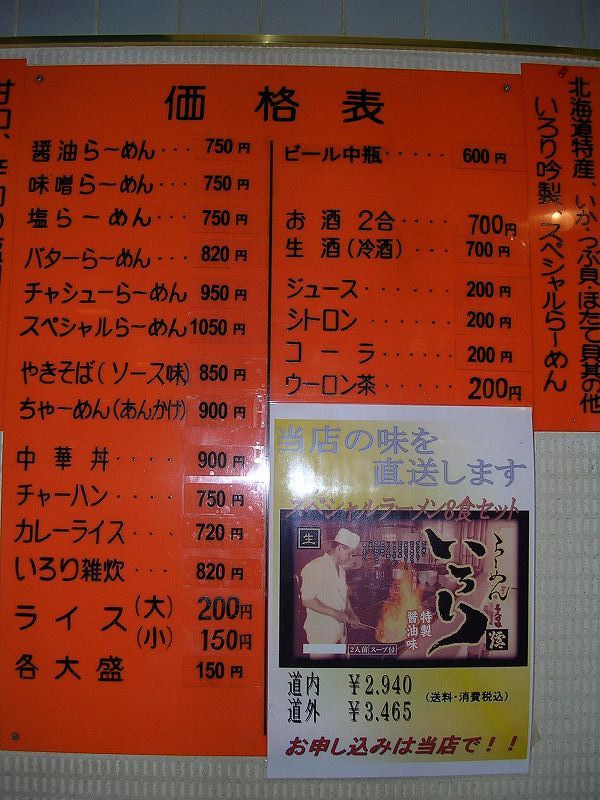 価格表
醤油ら〜めん 750円
味噌ら〜めん・・ 750円
塩ら〜めん・・・ 750円
バターら〜めん・・ 820円
チャシューら〜めん 950円
スペシャルら〜めん 1050円
やきそば(ソース味) 850円
ちゃ〜めん(あんかけ) 900円
中華丼・・・・ 900円
チャーハン・・・・ 750円
カレーライス・・・ 720円
いろり雑炊・・・ 820円
ライス(大) 200円
(小) 150円
各大盛 150円
ビール中瓶・・・・・ 600円
お酒2合・・・・ 700円
生酒(冷酒)・・・ 700円
ジュース・・・・・ 200円
シトロン・・・・・ 200円
コーラ・・・・ 200円
ウーロン茶・・・・ 200円
北海道特産、いか・つぶ貝・ほたて貝其の他
いろり吟製、スペシャルら〜めん
当店の味を
直送します
スペシャルラーメン8食セット
生
らーめん
いろり
特製
醤油味
2人前 スープ付
道内 ¥2.940
道外 ¥3.465
(送料・消費税込)
お申し込みは当店で!!